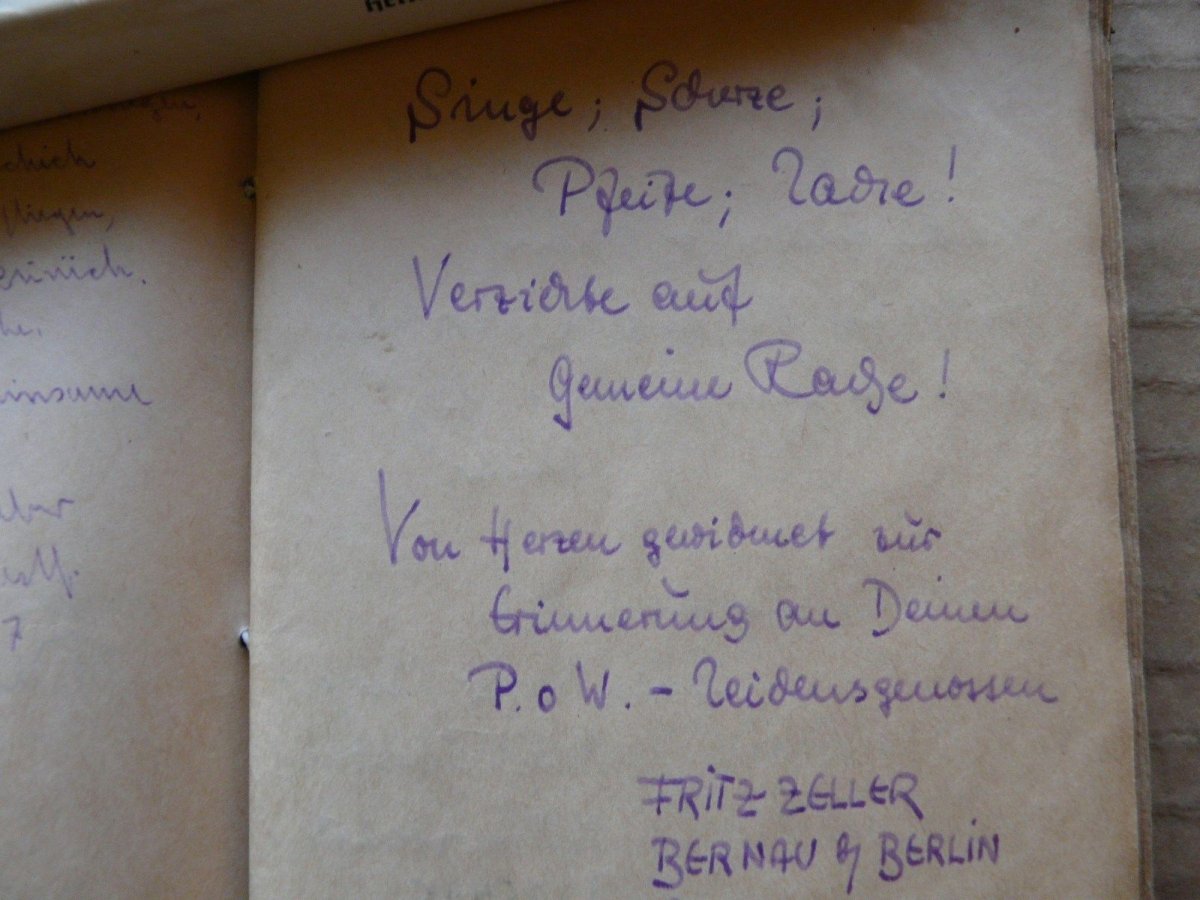 fliegen,
Singe; Scherze;
Pfeife; Lache!
Verzichte auf
Gemeine Rache!
Von Herzen gewidmet zur
Erinnerung an Deinen
P.o W. - Leidensgenossen
FRITZ ZELLER
BERNAU b/ BERLIN
7